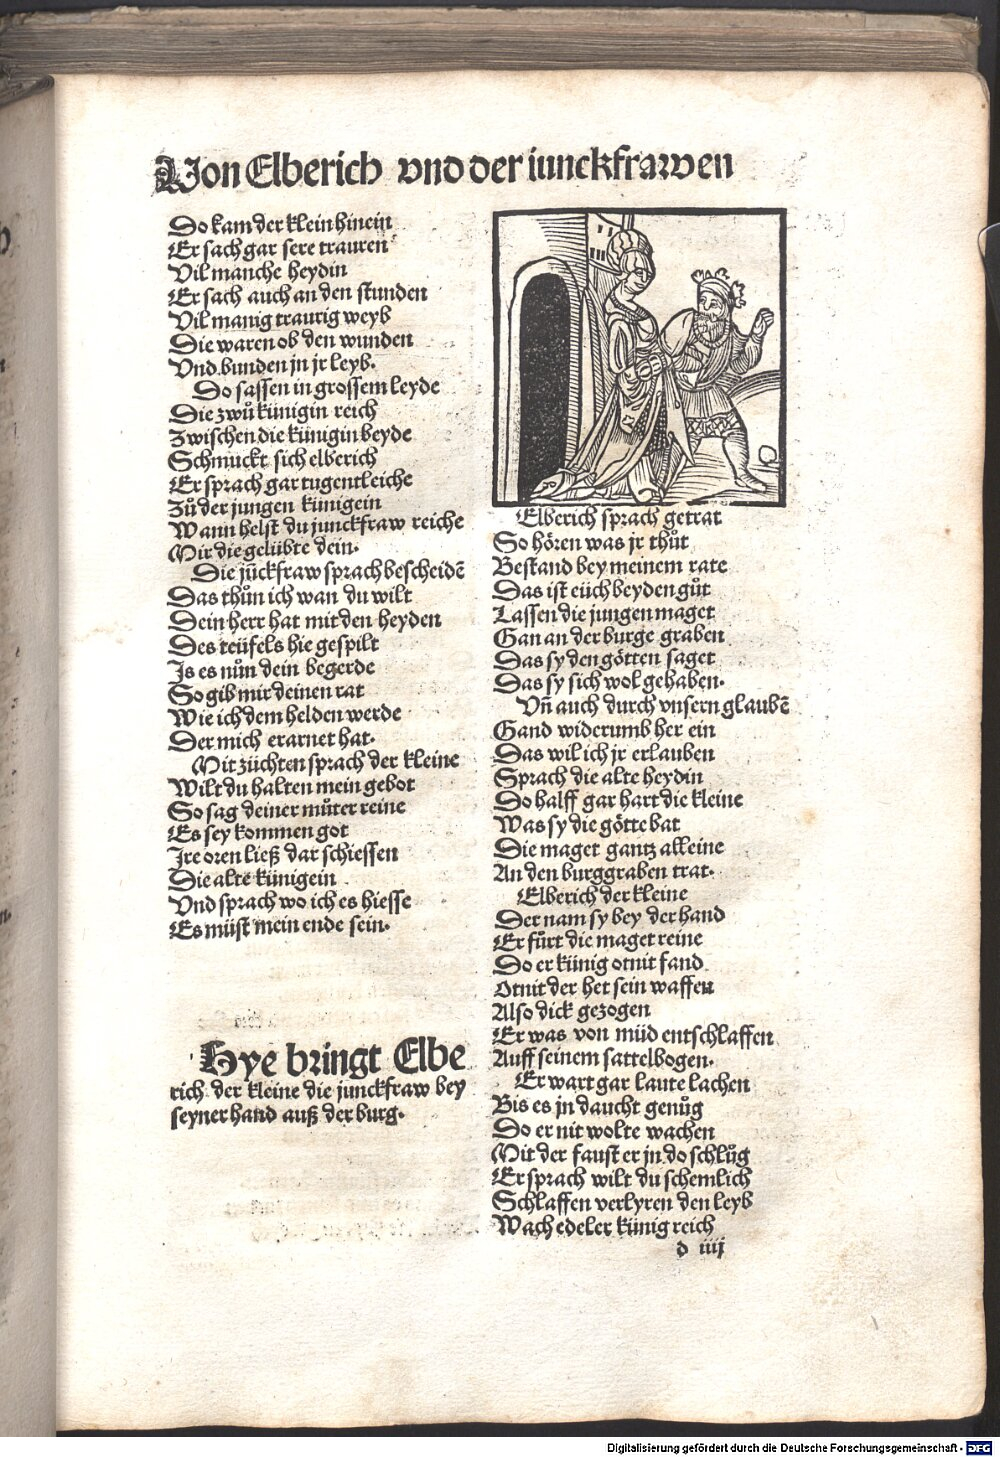 Von Elberich vnd der iunckfrawen
Do kam der klein hinein
Er sach gar sere trauren
Vil manche heydin
Er sach auch an den stunden
Vil manig traurig weyb
Die waren ob den wunden
Vnd bunden jn jr leyb.
Do sassen in grossem leyde
Die zwů künigin reich
Zwischen die künigin beyde
Schmuckt sich elberich
Er sprach gar tugentleiche
Zů der jungen künigein
Wann helst du junckfraw reiche
Mir die gelübte dein.
Die jückfraw sprach bescheidē
Das thůn ich wan du wilt
Dein herr hat mit den heyden
Des teüfels hie gespilt
Is es nůn dein begerde
So gib mir deinen rat
Wie ich dem helden werde
Der mich erarnet hat.
Mit züchten sprach der kleine
Wilt du halten mein gebot
So sag deiner můter reine
Es sey kommen got
Ire oren ließ dar schiessen
Die alte künigein
Vnd sprach wo ich es hiesse
Es müst mein ende sein.
Hye bringt Elbe
rich der kleine die junckfraw bey
seyner hand auß der burg.
Elberich sprach getrat
So hören was jr thůt
Bestand bey meinem rate
Das ist eüch beyden gůt
Lassen die jungen maget
Gan an der burge graben
Das sy den götten saget
Das sy sich wol gehaben.
Vñ auch durch vnsern glaubē
Gand widerumb her ein
Das wil ich jr erlauben
Sprach die alte heydin
Do halff gar hart die kleine
Was sy die götte bat
Die maget gantz alleine
An den burggraben trat.
Elberich der kleine
Der nam sy bey der hand
Er fůrt die maget reine
Do er künig otnit fand
Otnit der het sein waffen
Also dick gezogen
Er was von müd entschlaffen
Auff seinem sattelbogen.
Er wart gar laute lachen
Bis es jn daucht genůg
Do er nit wolte wachen
Mit der faust er jn do schlůg
Er sprach wilt du schemlich
Schlaffen verlyren den leyb
Wach edeler künig reich
d iiij
Digitalisierung gefördert durch die Deutsche Forschungsgemeinschaft - DFG